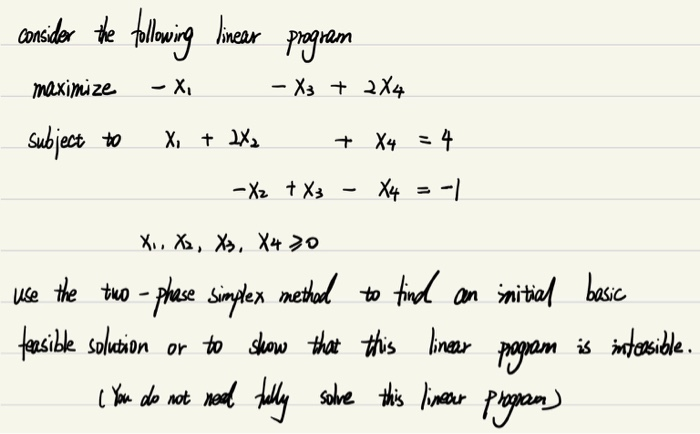 consider the following linear program
maximize - X₁ - X₃ + 2X₄
subject to X₁ + 2X₂ + X₄ = 4
-X₂ + X₃ - X₄ = -1
X₁, X₂, X₃, X₄ ⩾ 0
use the two-phase simplex method to find an initial basic
feasible solution or to show that this linear program is infeasible.
(You do not need fully solve this linear program)